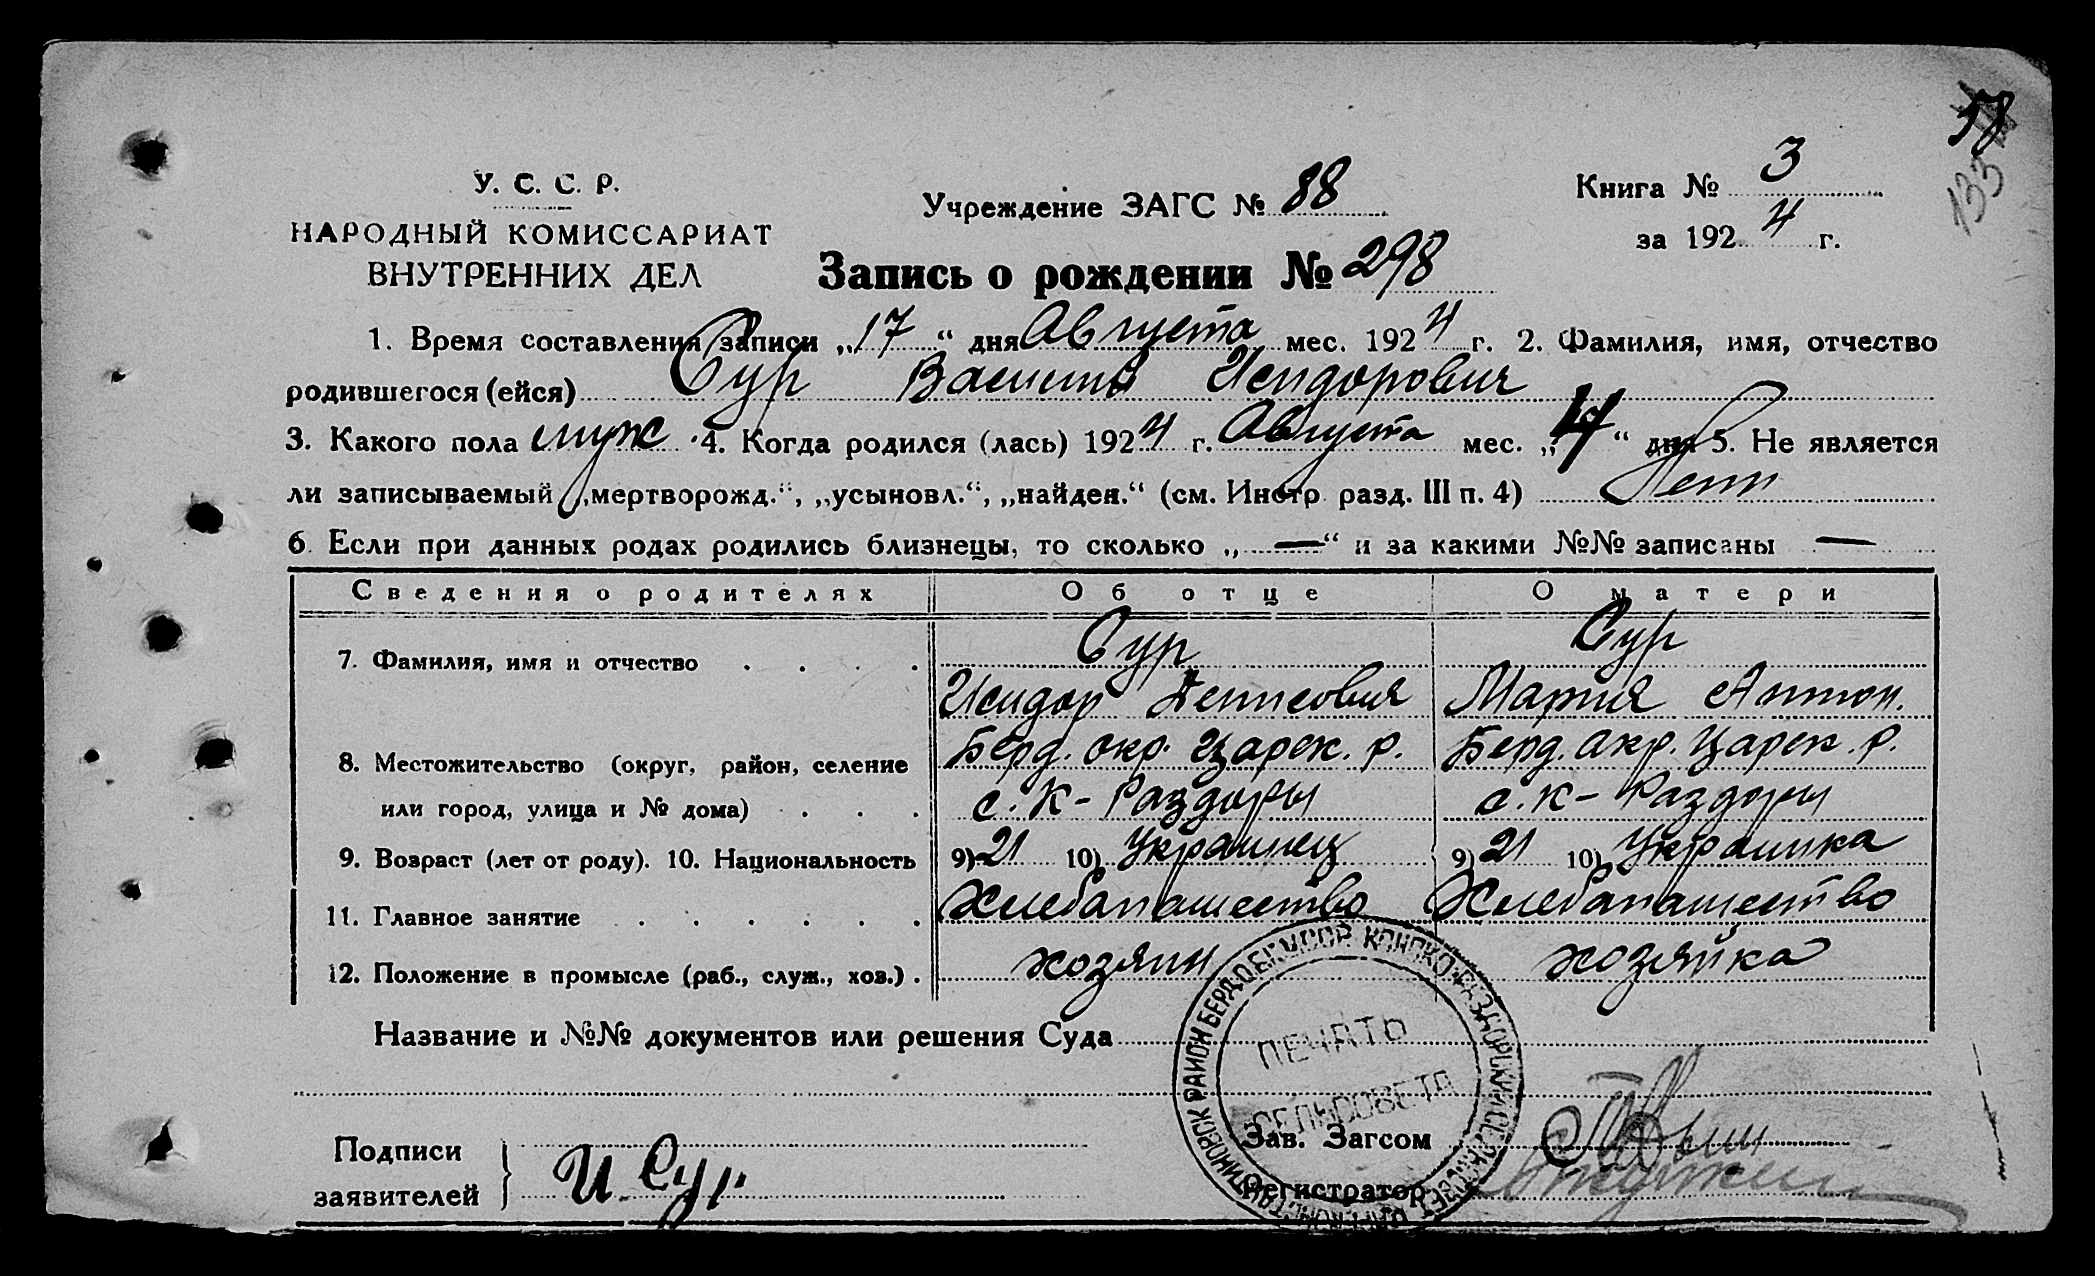 58
133
У. С. С. Р.
НАРОДНЫЙ КОМИССАРИАТ
ВНУТРЕННИХ ДЕЛ
Учреждение ЗАГС № 88
Книга № 3
за 1924 г.
Запись о рождении № 298
1. Время составления записи „17“ дня Августа мес. 1924 г. 2. Фамилия, имя, отчество
родившегося (ейся) Сур Василий Исидорович
3. Какого пола муж. 4. Когда родился (лась) 1924 г. Августа мес. „4“ дня 5. Не является
ли записываемый „мертворожд.“, „усыновл.“, „найден.“ (см. Инстр. разд. III п. 4) Нет
6. Если при данных родах родились близнецы, то сколько „—“ и за какими №№ записаны —
Сведения о родителях Об отце О матери
7. Фамилия, имя и отчество . . . . Сур Сур
Исидор Денисович Мария Антон.
8. Местожительство (округ, район, селение Берд. окр. Царек. р. Берд. окр. Царек. р.
или город, улица и № дома) . . . с. К-Раздоры с. К-Раздоры
9. Возраст (лет от роду). 10. Национальность 9) 21 10) Украинец 9) 21 10) Украинка
11. Главное занятие . . . . . . Хлебопашество Хлебопашество
12. Положение в промысле (раб., служ., хоз.) . хозяин хозяйка
Название и №№ документов или решения Суда
ПЕЧАТЬ
СЕЛЬСОВЕТА
Подписи
заявителей } И Сур
Зав. Загсом
Регистратор